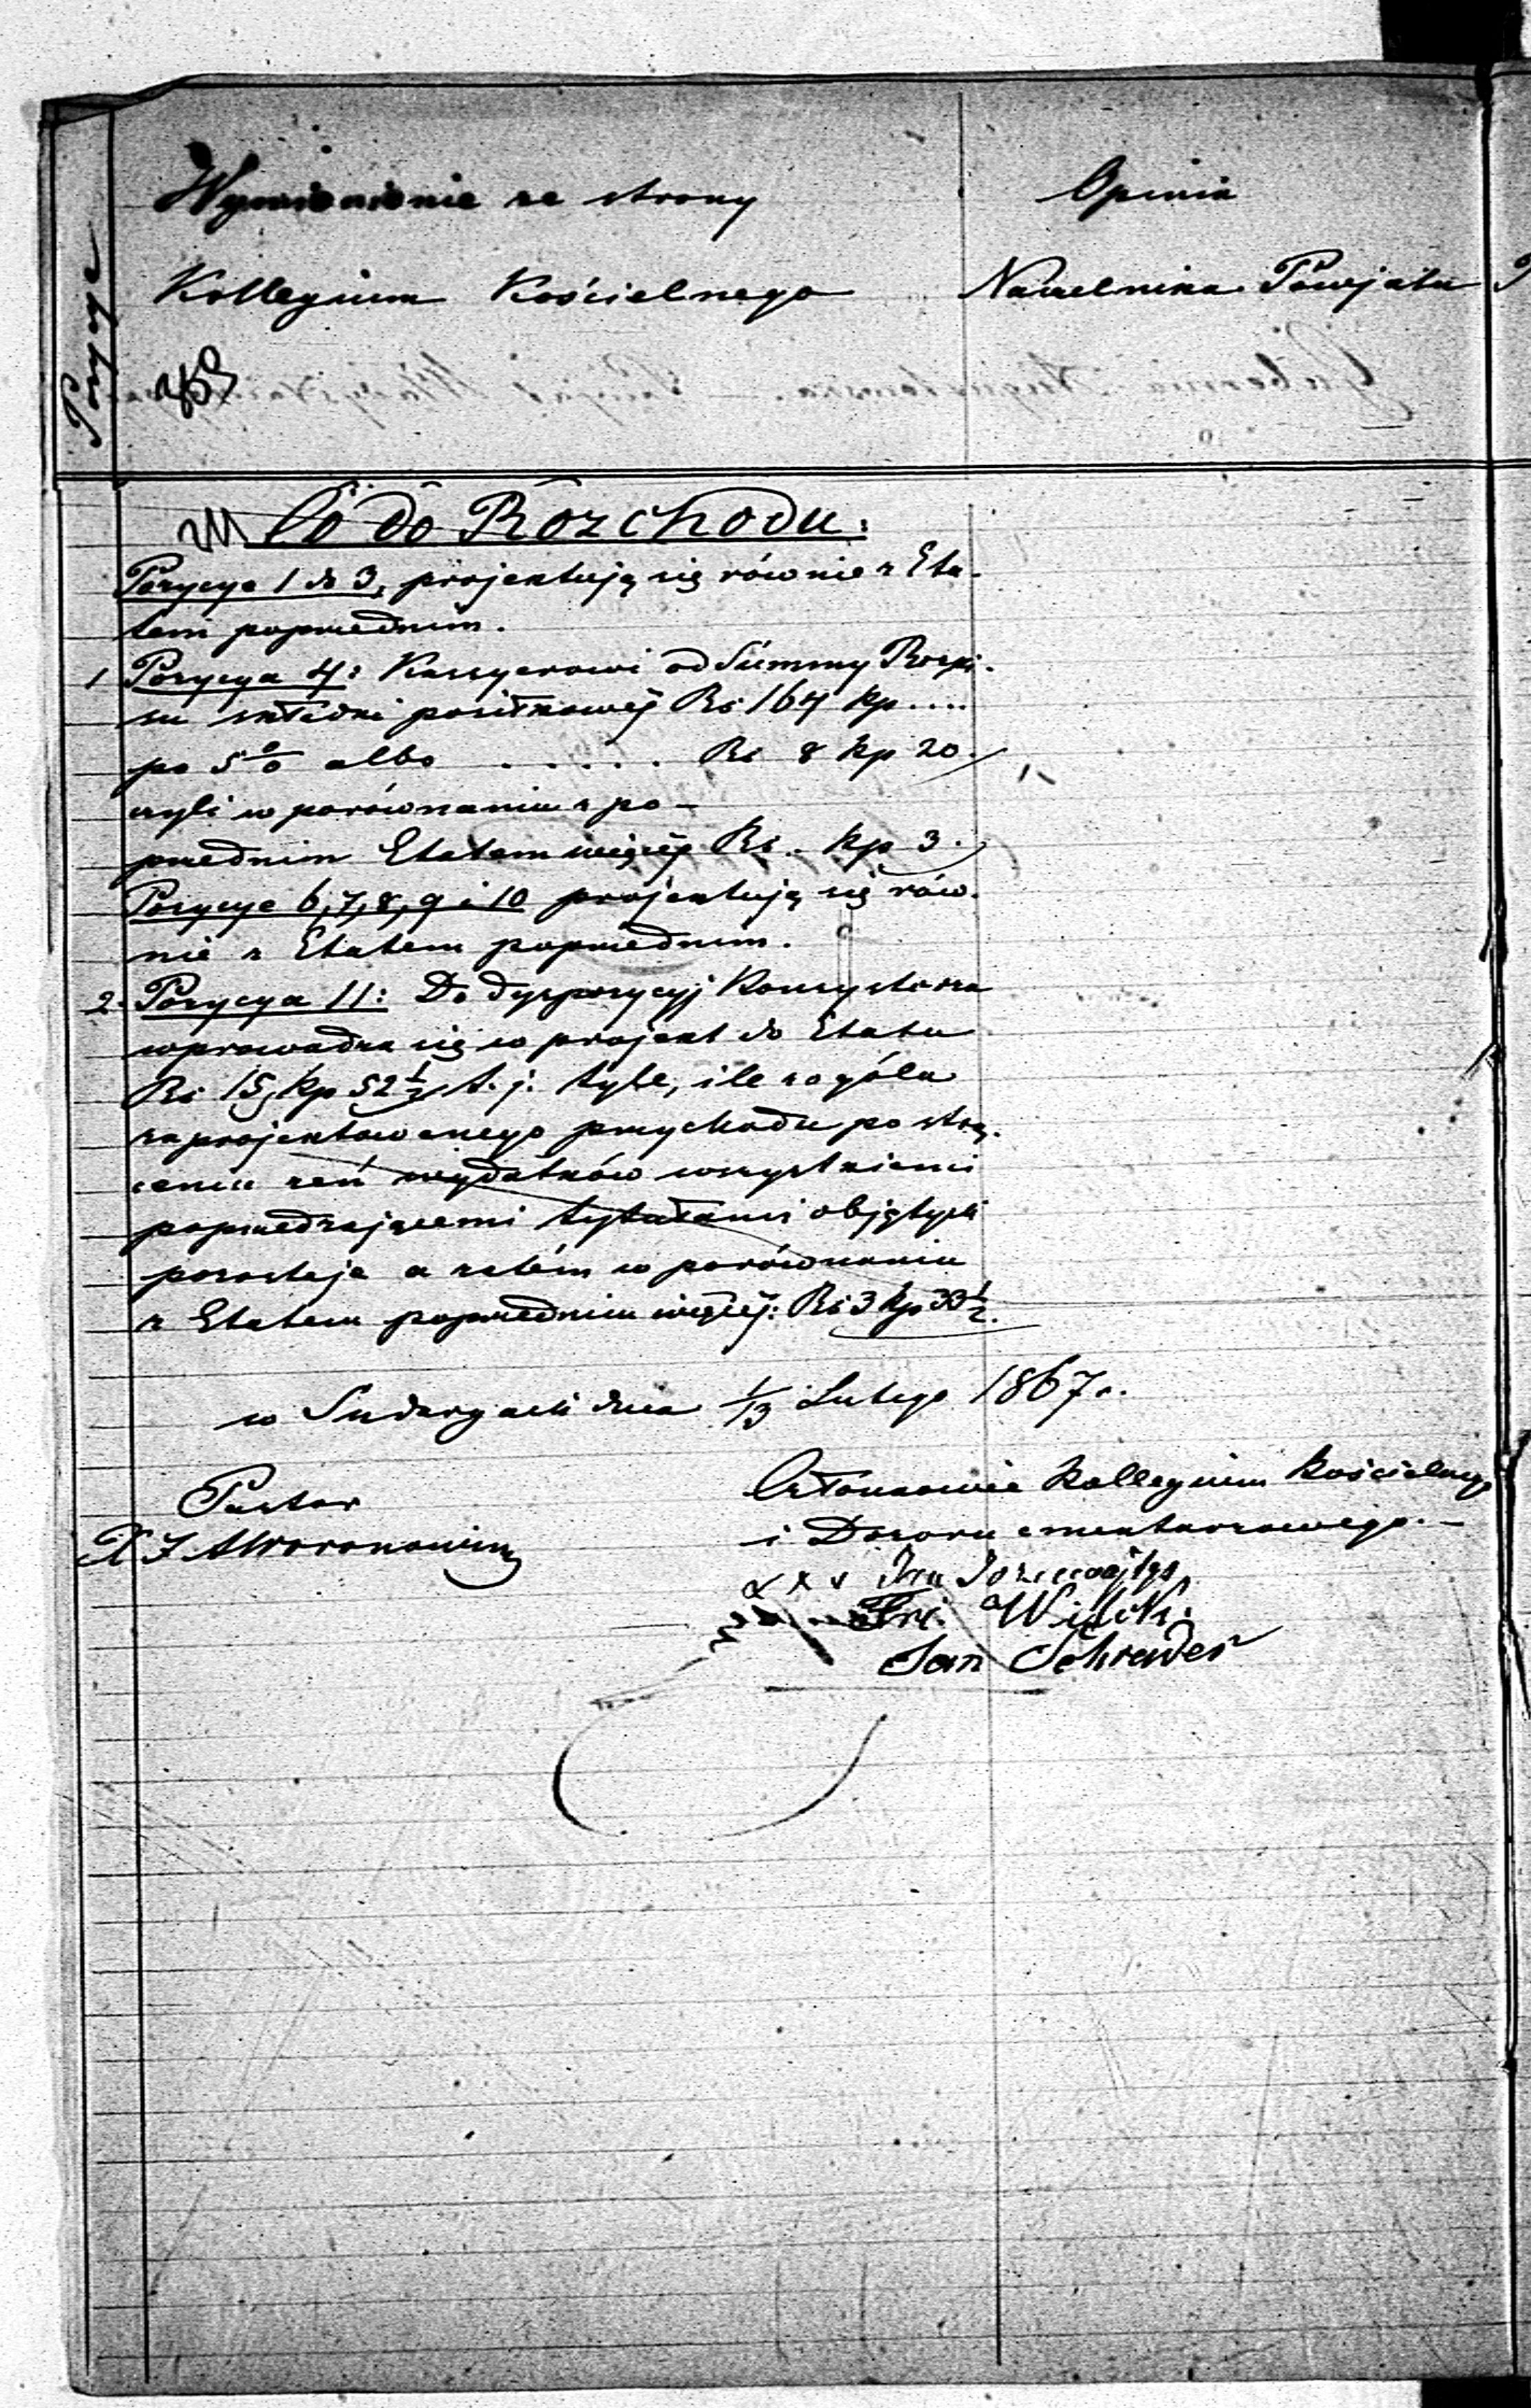 Pozycye
Wyjaśnienie ze strony
Kollegium Kościelnego
Opinia
Naczelnika Powiatu
Co do Rozchodu:
Pozycye 1 do 3, projektują się równie z Eta-
tem poprzednim.
1 Pozycya 4: Kassyerowi od Summy Rozpi-
su składki posiłkowéj Rs 164 kp....
po 5% albo . . . . . . Rs 8 kp 20.
czyli w porównaniu z po-
przednim Etatem więcéj Rs .. kp 3.
Pozycye 6, 7, 8, 9 i 10 projektują się rów-
nie z Etatem poprzednim.
2. Pozycya 11: Do dyspozycyj Konsystorza
wprowadza się w projekt do Etatu
Rs 15, kp 52 1/2 t. j. tyle, ile z ogółu
zaprojektowanego przychodu po strą-
ceniu zeń wydatków wszystkiemi
poprzedzającemi tytułami objętych
pozostaje a zatém w porównaniu
z Etatem poprzednim więcéj: Rs 3 kp 33 1/2.
w Sudargach dnia 1/13 Lutego 1867 r.
Pastor
Członkowie Kollegium Kościelnego
i Dozoru cmentarzowego.—
x x x Jan
Jan Schrader